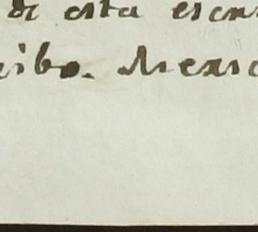 de esta escri
cibo. Mexic